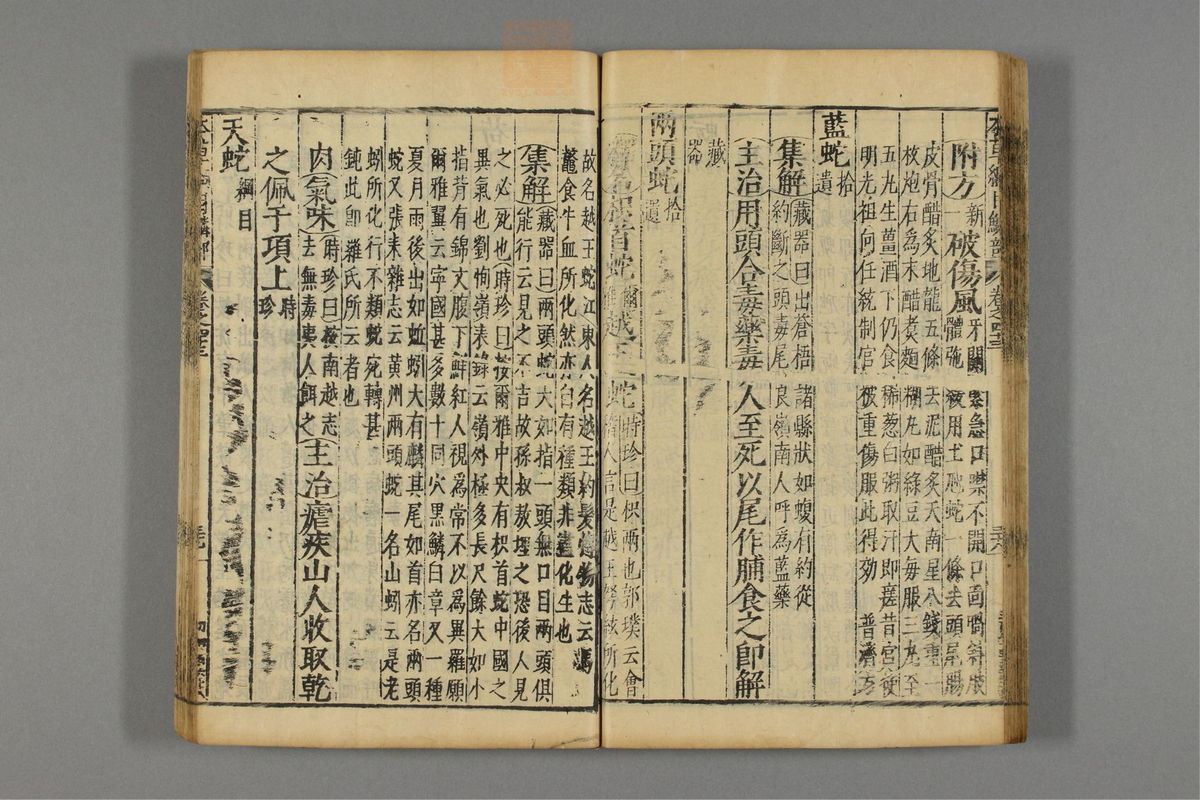 本草綱目鱗部 卷之四十三
附方新一破傷風牙關緊急口噤不開口面喎斜肢
體弛緩用土虺蛇一條去頭尾腸
皮骨醋炙地龍五條去泥醋炙天南星八錢重一
枚炮右為末醋煮麵糊丸如綠豆大每服三丸至
五丸生薑酒下仍食稀葱白粥取汗即瘥昔宮使
明光祖向任統制官被重傷服此得効 普濟方
藍蛇拾遺
集解藏器曰出蒼梧諸縣狀如蝮有約從
約斷之頭毒尾良嶺南人呼為藍藥
主治用頭合毒藥毒人至死以尾作脯食之即解
藏器
兩頭蛇拾遺
釋名枳首蛇爾雅越王蛇時珍曰枳兩也郭璞云會
稽人言是越王弩絃所化
故名越王蛇江東人名越王約髮博物志云馮
鼈食牛血所化然亦自有種類非盡化生也
集解藏器曰兩頭蛇大如指一頭無口目兩頭俱
能行云見之不吉故孫叔敖埋之恐後人見
之必死也時珍曰按爾雅中央有枳首蛇中國之
異氣也劉恂嶺表錄云嶺外極多長尺餘大如小
指背有錦文腹下鮮紅人視為常不以為異羅願
爾雅翼云寧國甚多數十同穴黑鱗白章又一種
夏月雨後出如蚯蚓大有鱗其尾如首亦名兩頭
蛇又張耒雜志云黃州兩頭蛇一名山蚓云是老
蚓所化行不類蛇宛轉甚
鈍此即羅氏所云者也
肉氣味時珍曰按南越志
去無毒夷人餌之主治瘧疾山人收取乾
之佩于項上時珍
天蛇綱目
卷之四十三